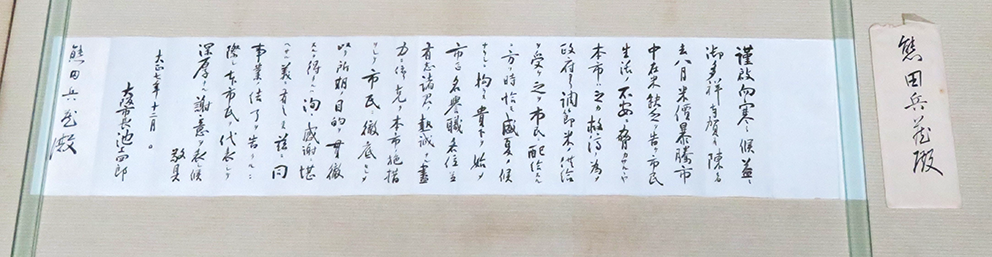 謹啓向寒之候益々
御多祥奉賀候陳者
去八月米價暴騰市
中在米缺乏ヲ告ケ市民
生活ノ不安ヲ脅カスヤ
本市ハ之カ救済ノ為メ
政府ノ調節米ノ供給
ヲ受ケ之ヲ市民ニ配給
方ノ時恰モ盛夏ノ候
拘ラス貴下ヲ始メ
市名譽職各位並
有志諸君ノ熱誠ナル盡
力ニ倚リ克ク本市施措
ヲシテ市民ニ徹底セシメ
以テ所期ノ目的ヲ貫徹
シ得タルハ洵ニ感謝ニ堪
ヘサル義ニ有之候茲ニ同
事業ノ結了ヲ告クルニ
際シ本市民ヲ代表シテ
深厚ナル謝意ヲ表シ候
敬具
大正七年十二月
大阪市長池上四郎
熊田兵蔵殿
熊田兵蔵殿